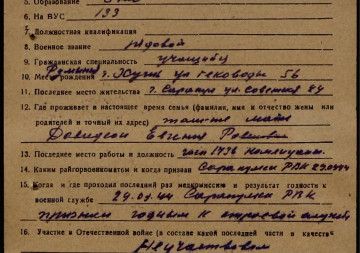 5. Образование
6. На ВУС 133
7. Должностная квалификация
8. Военное звание рядовой
9. Гражданская специальность учащийся
10. Место рождения Румыния г. ул 56
11. Последнее место жительства г. Сарапул ул. Советская
12. Где проживает в настоящее время семья (фамилия, имя и отчество жены или
родителей и точный их адрес) мать
Давидсон Евгения
13. Последнее место работы и должность
14. Каким райгорвоенкоматом и когда призван Сарапульск РВК
15. Когда и где проходил последний раз медкомиссию и результат годности к
военной службе 29.04.44 Сарапульск РВК
признан годным к строевой службе
16. Участие в Отечественной войне (в составе какой последней части и в качестве
Не участвовал